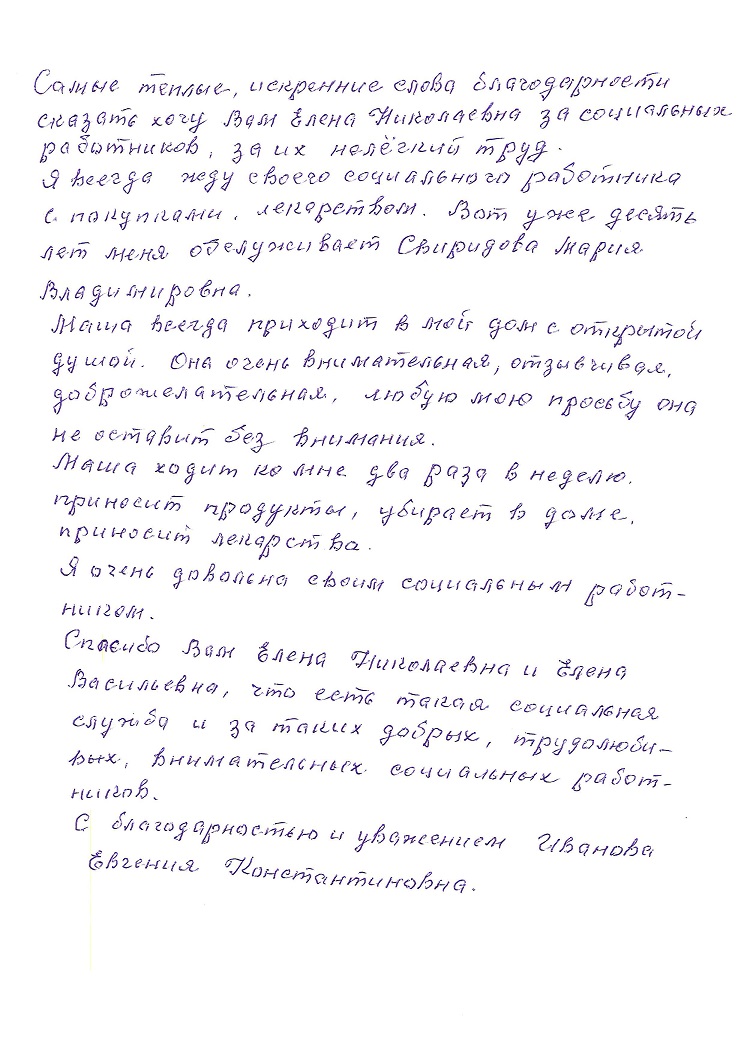 Самые теплые, искренние слова благодарности
сказать хочу Вам Елена Николаевна за социальных
работников, за их нелёгкий труд.
Я всегда жду своего социального работника
с покупками, лекарством. Вот уже десять
лет меня обслуживает Свиридова Мария
Владимировна.
Маша всегда приходит в мой дом с открытой
душой. Она очень внимательная, отзывчивая,
доброжелательная, любую мою просьбу она
не оставит без внимания.
Маша ходит ко мне два раза в неделю,
приносит продукты, убирает в доме,
приносит лекарства.
Я очень довольна своим социальным работ-
ником.
Спасибо Вам Елена Николаевна и Елена
Васильевна, что есть такая социальная
служба и за таких добрых, трудолюби-
вых, внимательных социальных работ-
ников.
С благодарностью и уважением Иванова
Евгения Константиновна.